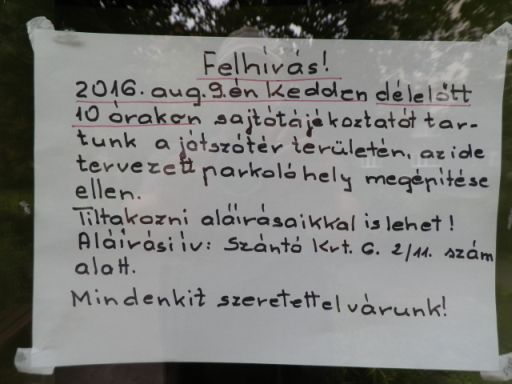 Felhívás!
2016. aug. 9.én kedden délelőtt
10 órakon sajtótájékoztatót tar-
tunk a játszótér területén, az ide
tervezett parkoló hely megépítése
ellen.
Tiltakozni aláírásaikkal is lehet!
Aláírási ív: Szántó Krt. 6. 2/11. szám
alatt.
Mindenkit szeretettel várunk!